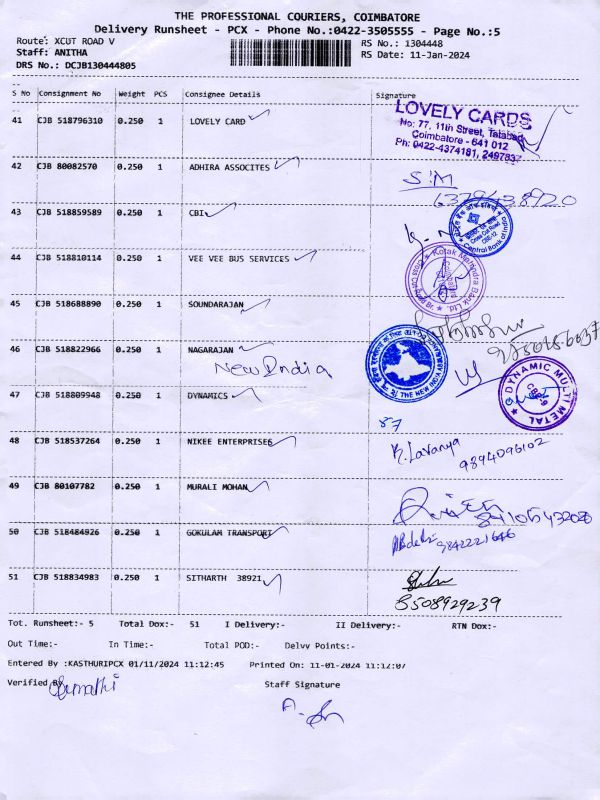 THE PROFESSIONAL COURIERS, COIMBATORE
Delivery Runsheet - PCX - Phone No.:0422-3505555 - Page No.:5
Route: XCUT ROAD V RS No.: 1304448
Staff: ANITHA RS Date: 11-Jan-2024
DRS No.: DCJB130444805
S No Consignment No Weight PCS Consignee Details Signature
41 CJB 518796310 0.250 1 LOVELY CARD
LOVELY CARDS
No: 77, 11th Street, Tatabad
Coimbatore - 641 012
Ph: 0422-4374181, 249783
42 CJB 80082570 0.250 1 ADHIRA ASSOCITES
S.M
6379438920
43 CJB 518859589 0.250 1 CBI
Central Bank of India
44 CJB 518810114 0.250 1 VEE VEE BUS SERVICES
Kotak Mahindra Bank Ltd.
45 CJB 518688890 0.250 1 SOUNDARAJAN
46 CJB 518822966 0.250 1 NAGARAJAN
New India
THE NEW INDIA
47 CJB 518809948 0.250 1 DYNAMICS
DYNAMIC MULTI METAL
CBE-9
87
48 CJB 518537264 0.250 1 NIKEE ENTERPRISES
R. Lavanya
9894096102
49 CJB 80107782 0.250 1 MURALI MOHAN
50 CJB 518484926 0.250 1 GOKULAM TRANSPORT
9842221646
51 CJB 518834983 0.250 1 SITHARTH 38921
8508929239
Tot. Runsheet:- 5 Total Dox:- 51 I Delivery:- II Delivery:- RTN Dox:-
Out Time:- In Time:- Total POD:- Delvy Points:-
Entered By :KASTHURIPCX 01/11/2024 11:12:45 Printed On: 11-01-2024 11:12:07
Verified By
Staff Signature